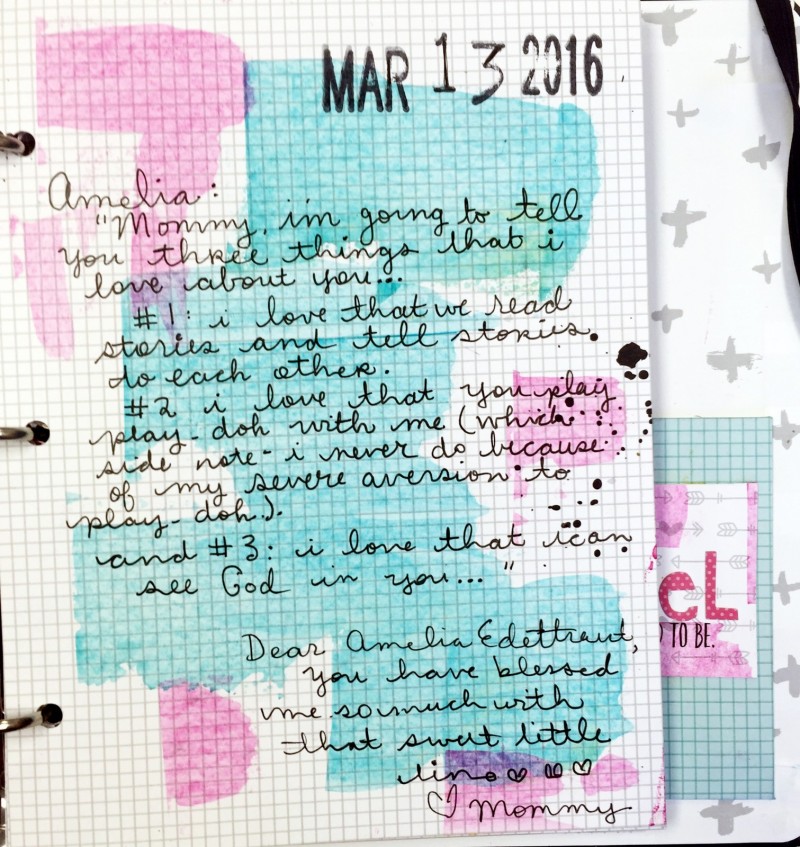 MAR 13 2016
Amelia:
"Mommy, i'm going to tell
you three things that i
love about you...
#1: i love that we read
stories and tell stories.
to each other.
#2 i love that you play
play-doh with me (which
side note - i never do because
of my severe aversion to
play-doh).
and #3: i love that i can
see God in you... "
Dear Amelia
you have blessed
me so much with
that sweet little
line ♡ ♡ ♡
♡ Mommy
eL
TO BE.